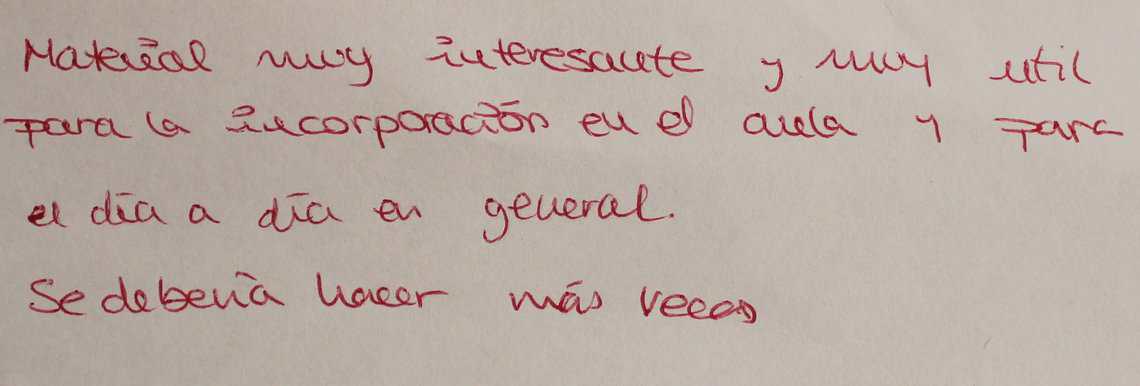 Material muy interesante y muy util
para la incorporación en el aula y para
el día a día en general.
Se debería hacer más veces